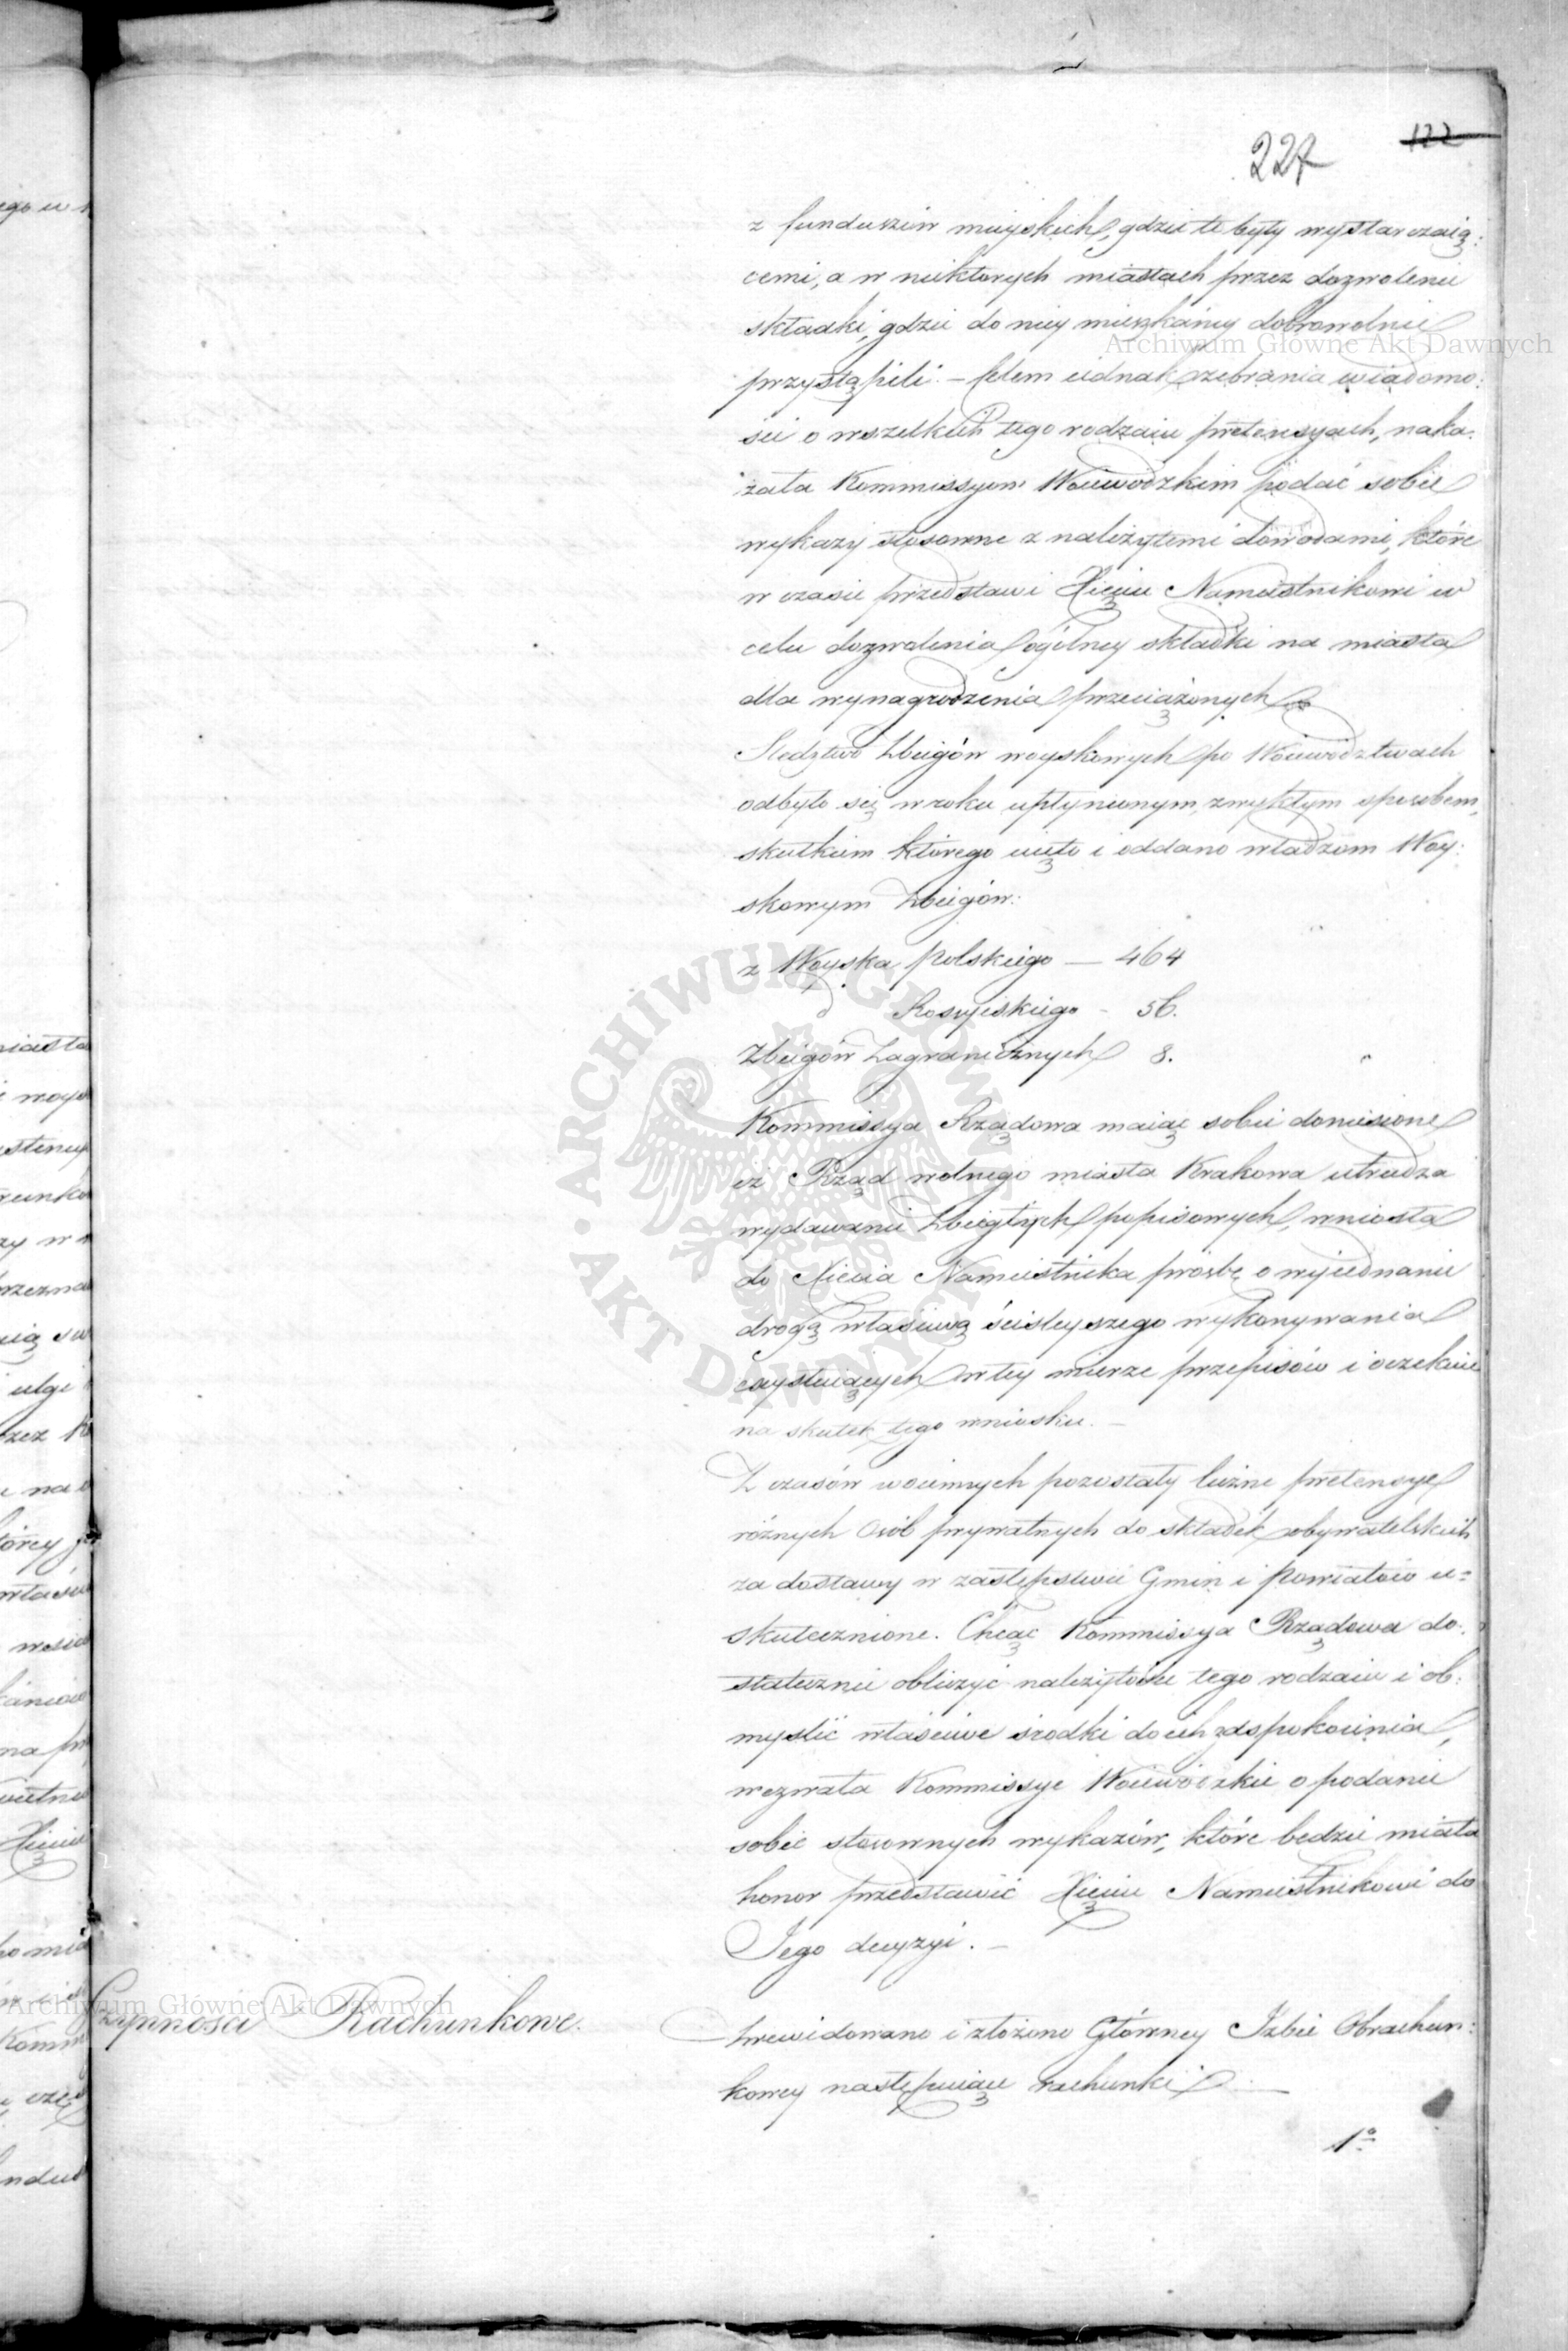 227 122
z funduszów mieyskich, gdzie te były wystarczaią:
cemi, a w niektorych miastach przez dozwolenie
składki, gdzie do niey mieszkańcy dobrowolnie
przystąpili. – Celem iednak zebrania wiadomo:
ści o wszelkich tego rodzaiu pretensyach, naka:
zała Kommissyom Woiewodzkim podać sobie
wykazy stosowne z należytemi dowodami, które
w czasie przedstawi Xięciu Namiestnikowi w
celu dozwolenia ogólney składki na miasta
dla wynagrodzenia przeciążonych
Sledztwo Zbiegów woyskowych po Woiewodztwach
odbyło się w roku upłynionym, zwykłym sposobem,
skutkiem którego uięto i oddano władzom Woy:
skowym Zbiegów:
z Woyska Polskiego — 464
d° Rossyiskiego – 56.
Zbiegów Zagranicznych 8.
Kommissya Rządowa maiąc sobie doniesione
iż Rząd wolnego miasta Krakowa utrudza
wydawanie Zbiegłych popisowych, wniosła
do Xięcia Namiestnika prośbę o wyiednanie
drogą właściwą ściśleyszego wykonywania
exystuiących w tey mierze przepisów i oczekuie
na skutek tego wniosku. –
Z czasów woiennych pozostały liczne pretensye
różnych Osób prywatnych do składek obywatelskich
za dostawy w zastępstwie Gmin i Powiatów u=
skutecznione. Chcąc Kommissya Rządowa do:
statecznie obliczyć należytości tego rodzaiu i ob:
myślić właściwe środki do ich zaspokoienia,
wezwała Kommissye Woiewódzkie o podanie
sobie stosownych wykazów, które będzie miała
honor przedstawić Xięciu Namiestnikowi do
Jego decyzyi. –
Czynności Rachunkowe.
Zrewidowano i złożono Główney Izbie Obrachun:
kowey następuiące rachunki
1°
Archiwum Główne Akt Dawnych
Archiwum Główne Akt Dawnych
ARCHIWUM GŁÓWNE • AKT DAWNYCH